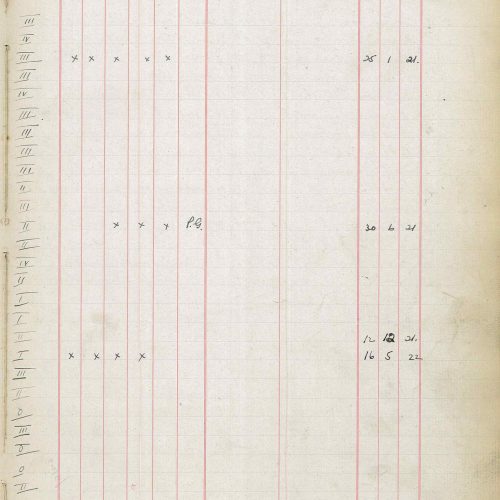 III
IV
III x x x x x 25 1 21.
III
IV
III
III
III
III
II
III
II x x x P.G. 30 6 21
II
IV
II
I
I
II 12 12 21.
I x x x x 16 5 22
III
II
0
III
0
II